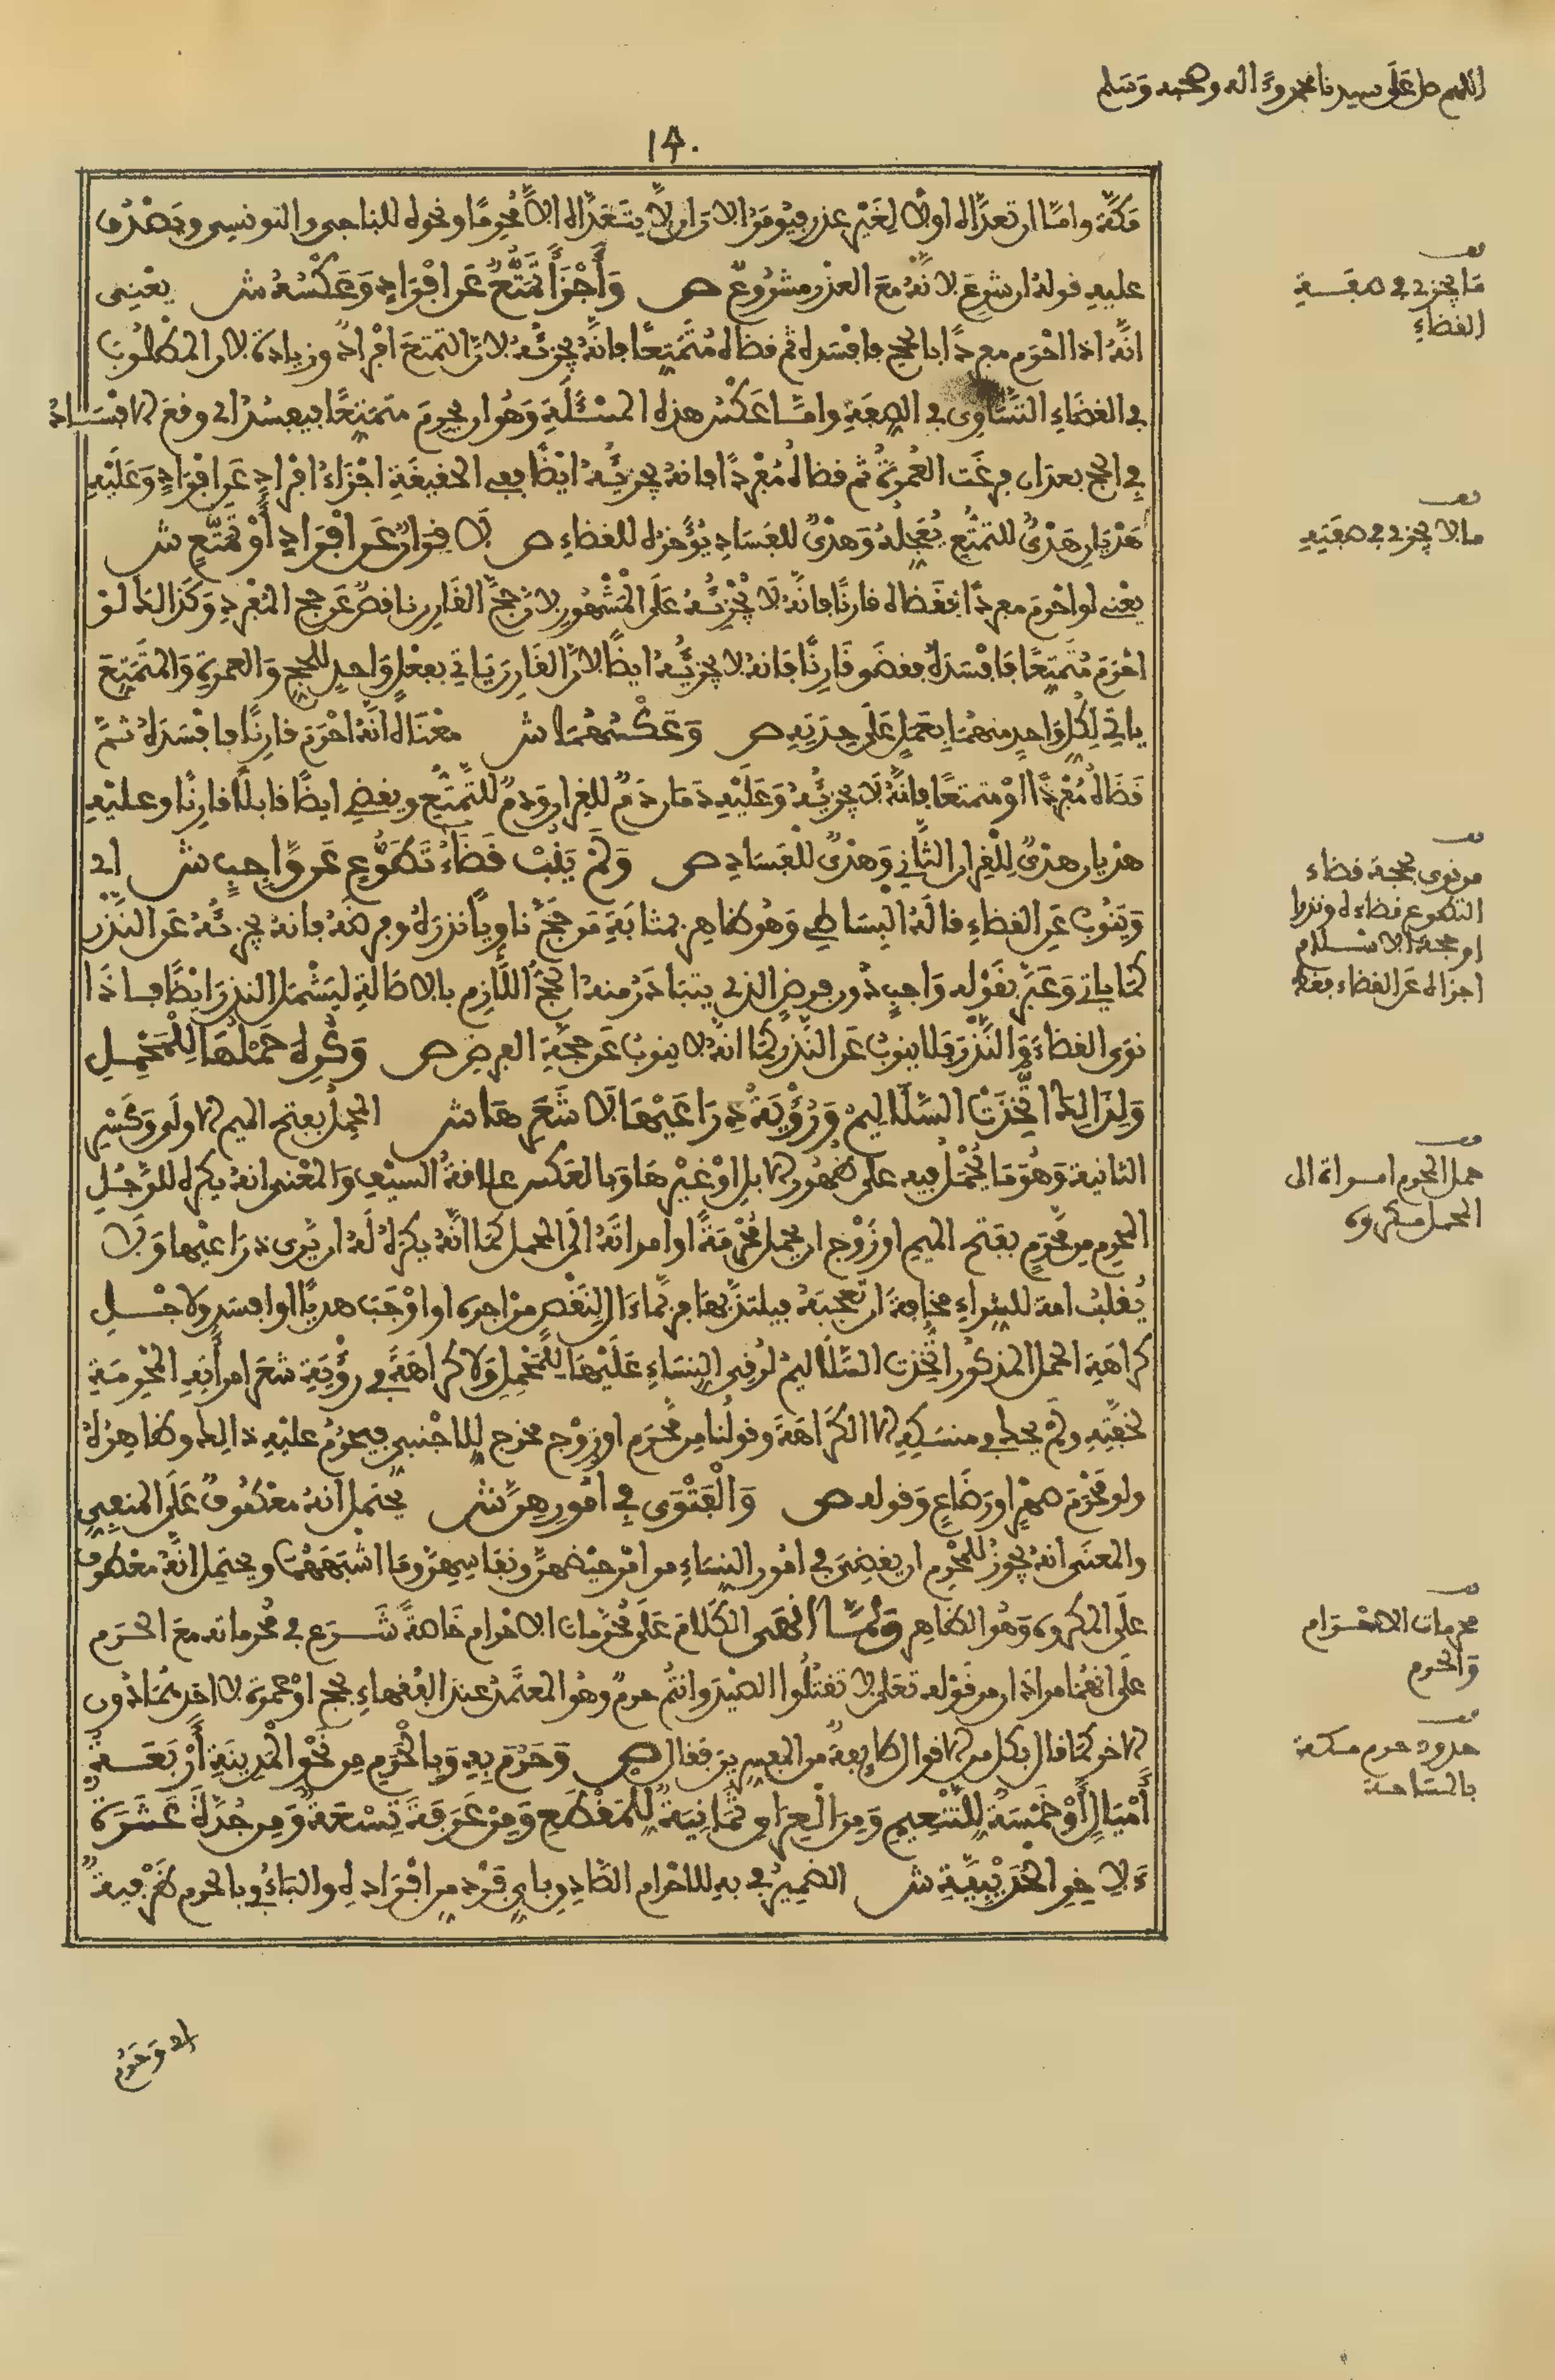 اللهم صل على سيدنا محمد وءاله وصحبه وسلم
14.
مكة واما ان تعداه اولا لغير عذر فيومر الان ان لا يتعداه الا محرما ونحوه للباجي والتونسي ويصدق
عليه قوله ان شرع لانه مع العذر مشروع ص وأجزأ تمتع عن افراد وعكسه ش يعني
انه اذا احرم مفردا بالحج فافسده ثم قضاه متمتعا فانه يجزئه لان التمتع افراد وزيادة لان المطلوب
في القضاء التساوي في الصفة واما عكس هذه المسئلة وهو ان يحرم متمتعا فيفسد اي وقع الافساد
في الحج بعد ان فرغت العمرة ثم قضاه مفردا فانه يجزئه ايضا ففي الحقيقة اجزاء افراد عن افراد وعليه
هديان هدي للتمتع يعجله وهدي للفساد يؤخره للقضاء ص لا قران عن افراد أو تمتع ش
يعني لو احرم مفردا فقضاه قارنا فانه لا يجزئه على المشهور لان حج القارن ناقص عن حج المفرد وكذالك لو
احرم متمتعا فافسده فقضى قارنا فانه لا يجزئه ايضا لان القارن ياتي بفعل واحد للحج والعمرة والمتمتع
ياتي لكل واحد منهما بعمل على حدته ص وعكسهما ش معناه انه احرم قارنا فافسده ثم
قضاه مفردا او متمتعا فانه لا يجزئه وعليه دمان دم للقران ودم للتمتع ويقضي ايضا قابلا قارنا وعليه
هديان هدي للقران الثاني وهدي للفساد ص ولم ينب قضاء تطوع عن واجب ش اي
وينوب عن القضاء قاله البساطي وهو ظاهر بمثابة من حج ناويا نذره وفرضه فانه يجزئه عن النذر
كما ياتي وعبر بقوله واجب دون فرض الذي يتبادر منه الحج اللازم بالاصالة ليشمل النذر ايضا فاذا
نوى القضاء والنذر فلا ينوب عن النذر كما انه لا ينوب عن حجة الفرض ص وكره حملها للمحمل
ولذالك اتخذت السلاليم ورؤية ذراعيها لا شعرها ش المحمل بفتح الميم الاولى وكسر
الثانية وهو ما يحمل فيه على ظهور الابل او غيرها وبالعكس علاقة السيف والمعنى انه يكره للرجل
المحرم من محرم بفتح الميم او زوج ان يحمل محرمة او امراته الى المحمل كما انه يكره له ان يرى ذراعيها ولا
يقلب امة للشراء مخافة ان تعجبه فيلتذ بها فربما ءال لنقص من اجره او اوجب هديا او افسد ولاجل
كراهة الحمل المذكور اتخذت السلاليم لرقي النساء عليها للمحمل ولا كراهة في رؤية شعر امرأته المحرمة
لخفته ولم يحك في منسكه الا الكراهة وقولنا من محرم او زوج مخرج للاجنبي فيحرم عليه ذالك وظاهره
ولو محرم صهر او رضاع وقوله ص والفتوى في امورهن ش يحتمل انه معطوف على المنفي
والمعنى انه يجوز للمحرم ان يفتي في امور النساء من امر حيضهن ونفاسهن وما اشبههما ويحتمل انه معطوف
على المكروه وهو الظاهر ولما انهى الكلام على محرمات الاحرام خاصة شرع في محرماته مع الحرم
على انهما مرادان من قوله تعلى لا تقتلوا الصيد وانتم حرم وهو المعتمد عند الفقهاء بحج او عمرة لا احدهما دون
الاخر كما قال بكل من الاقوال طايفة من المفسرين فقال ص وحرم به وبالحرم من نحو المدينة أربعة
أميال أو خمسة للتنعيم ومن العراق ثمانية للمقطع ومن عرفة تسعة ومن جدة عشرة
ءلاخر الحديبية ش الضمير في به للاحرام الصادق باي فرد من افراده والباء في وبالحرم ظرفية
اي وحرم
قف
ما يجزي في صفة
القضاء
قف
ما لا يجزي في صفته
قف
من نوى بحجة قضاء
التطوع قضاءه ونذرا
او حجة الاسلام
اجزاه عن القضاء فقط
قف
حمل المحرم امراة الى
المحمل مكروه
قف
محرمات الاحرام
والحرم
قف
حدود حرم مكة
بالمساحة